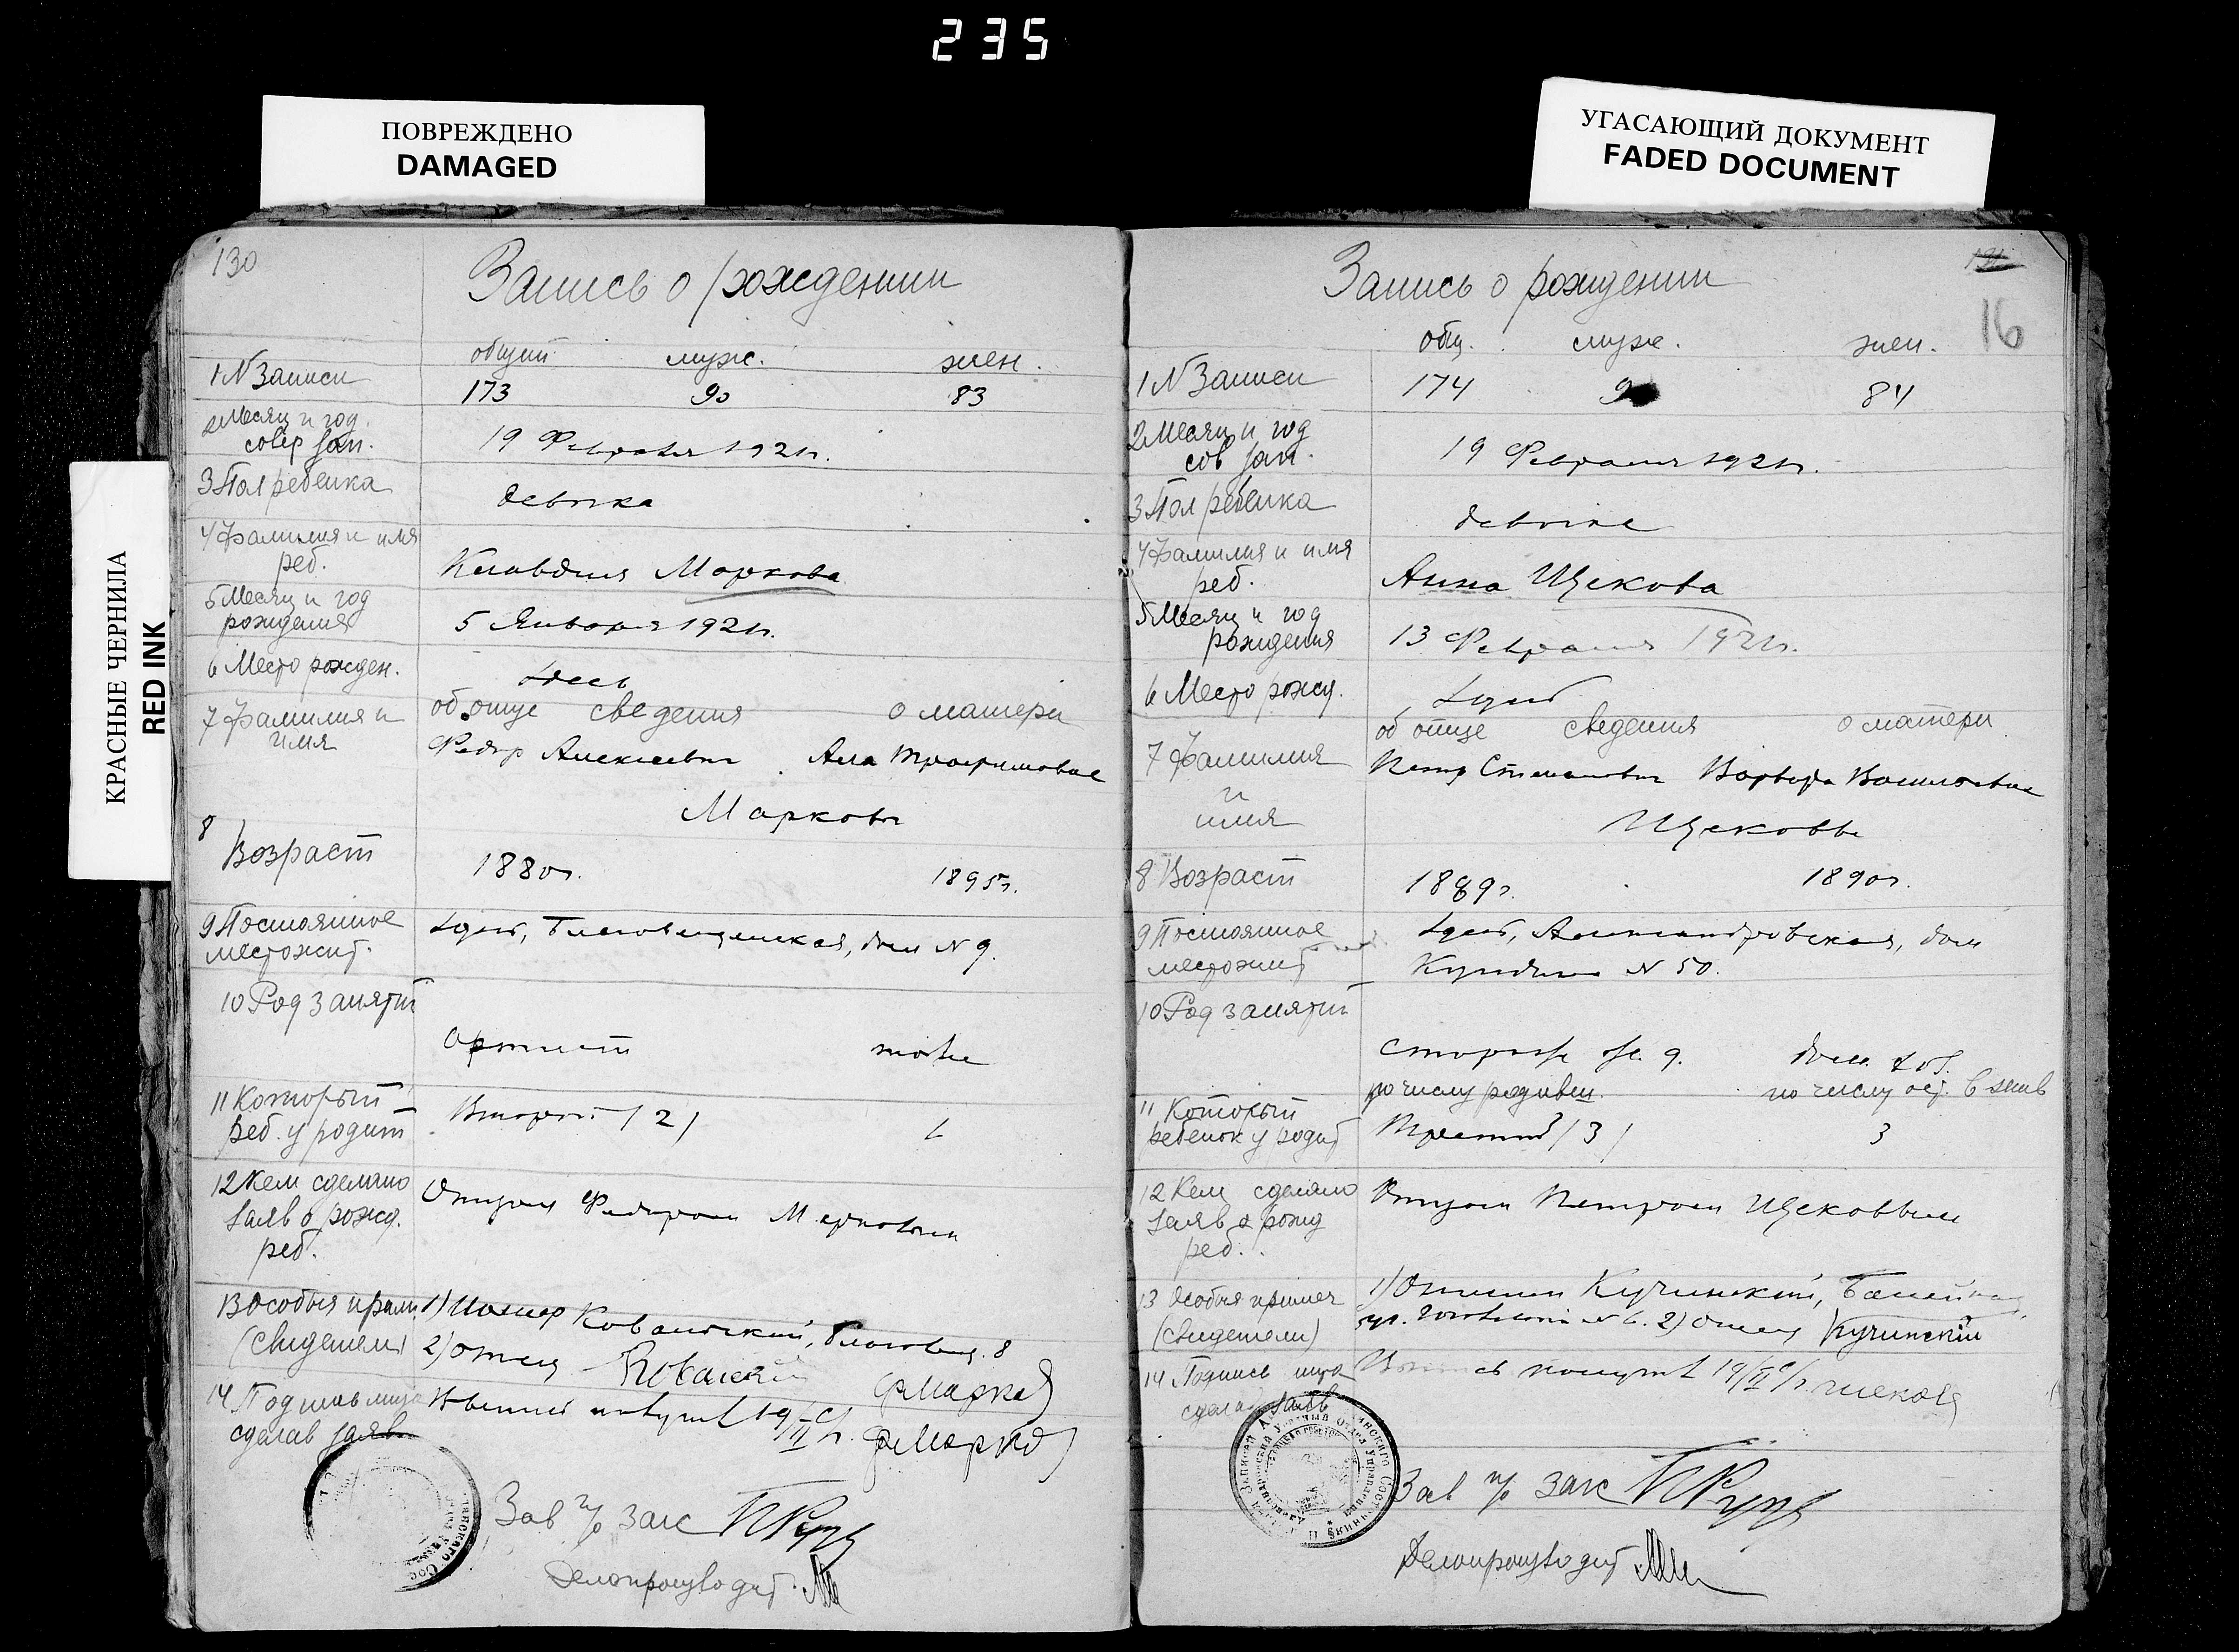 235
ПОВРЕЖДЕНО
DAMAGED
УГАСАЮЩИЙ ДОКУМЕНТ
FADED DOCUMENT
КРАСНЫЕ ЧЕРНИЛА
RED INK
130
Запись о рождении
общий муж. жен.
1 N Записи 173 90 83
2 Месяц и год.
совер зап. 19 Февраля 1921 г.
3 Пол ребенка девочка
4 Фамилия и имя
реб. Клавдия Маркова
5 Месяц и год
рождения 5 Января 1921 г.
6 Место рожден. здесь
об отце сведения о матери
7 Фамилия и
имя Федор Алексеевич Трофимовна
Марковы
8 Возраст 1880 г. 1895 г.
9 Постоянное
местожит. Здесь, Благовещенская, дом N 9.
10 Род занятий
артист тоже
11 Который
реб. у родит Второй /2/
12 Кем сделано
заяв о рожд.
реб. Отцом Федором Марковым
13 Особыя прим. 1)
(свидетели) 2) отец
14 Подпись лица
сделав заяв.
Зав п/о загс
Делопроизводит.
16
Запись о рождении
общ. муж. жен.
1 N Записи 174 84
2 Месяц и год
сов зап. 19 Февраля 1921 г.
3 Пол ребенка девочка
4 Фамилия и имя
реб. Анна Щекова
5 Месяц и год
рождения 13 Февраля 1921 г.
6 Место рожд. Здесь
об отце сведения о матери
7 Фамилия
и
имя Петр Степанович Варвара Васильевна
Щековы
8 Возраст 1889 г. 1890 г.
9 Постоянное
местожит Здесь, Александровская, дом
N 50.
10 Род занятий
сторож ж. д. дом. хоз.
по числу родивш. по числу ост. в жив
11 Который
ребенок у родит Третий /3/ 3
12 Кем сделано
заяв о рожд
реб. Отцом Петром Щековым
13 Особыя примеч 1) Кучинский,
(свидетели) N 6. 2) Кучинский
14 Подпись лица
сделав заяв
Зав п/о загс
Делопроизводит